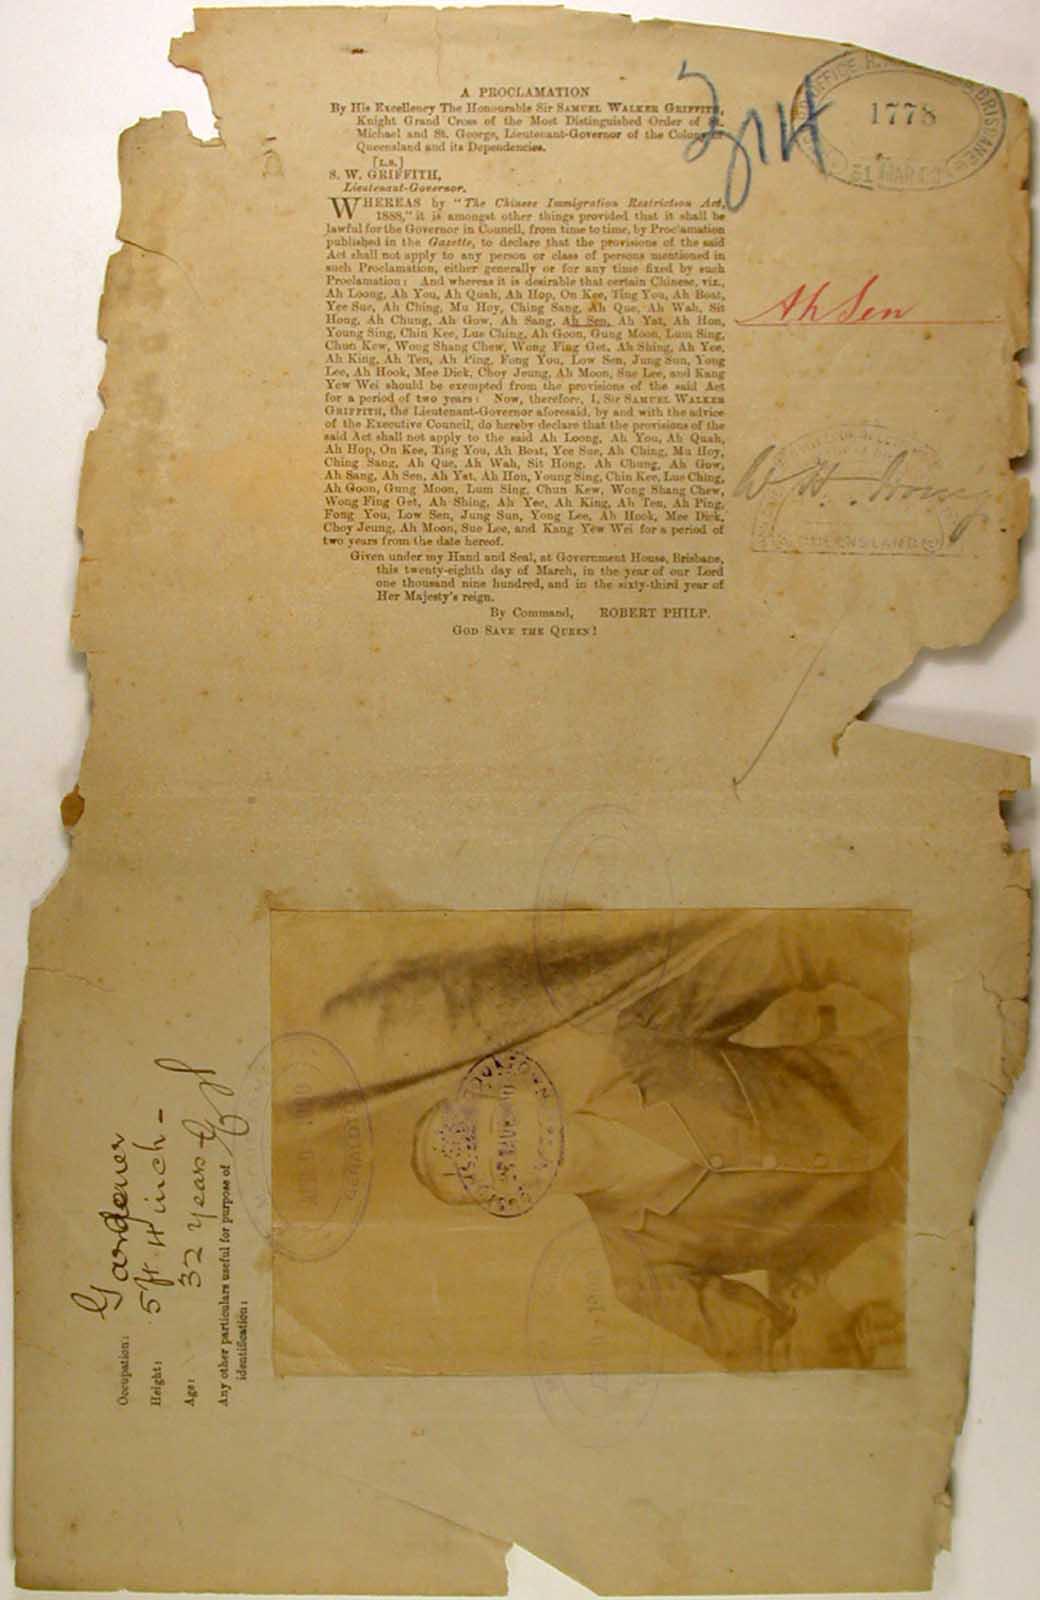 A PROCLAMATION
By His Excellency The Honourable Sir SAMUEL WALKER GRIFFITH,
Knight Grand Cross of the Most Distinguished Order of St.
Michael and St. George, Lieutenant-Governor of the Colony of
Queensland and its Dependencies.
[L.S.]
S. W. GRIFFITH,
Lieutenant-Governor.
WHEREAS by "The Chinese Immigration Restriction Act,
1888," it is amongst other things provided that it shall be
lawful for the Governor in Council, from time to time, by Proclamation
published in the Gazette, to declare that the provisions of the said
Act shall not apply to any person or class of persons mentioned in
such Proclamation, either generally or for any time fixed by such
Proclamation: And whereas it is desirable that certain Chinese, viz.,
Ah Loong, Ah You, Ah Quah, Ah Hop, On Kee, Ting You, Ah Boat,
Yee Sue, Ah Ching, Mu Hoy, Ching Sang, Ah Que, Ah Wah, Sit
Hong, Ah Chung, Ah Gow, Ah Sang, Ah Sen, Ah Yat, Ah Hon,
Young Sing, Chin Kee, Lue Ching, Ah Goon, Gung Moon, Lum Sing,
Chun Kew, Wong Shang Chew, Wong Fing Get, Ah Shing, Ah Yee,
Ah King, Ah Ten, Ah Ping, Fong You, Low Sen, Jung Sun, Yong
Lee, Ah Hook, Mee Dick, Choy Jeung, Ah Moon, Sue Lee, and Kang
Yew Wei should be exempted from the provisions of the said Act
for a period of two years: Now, therefore, I, Sir SAMUEL WALKER
GRIFFITH, the Lieutenant-Governor aforesaid, by and with the advice
of the Executive Council, do hereby declare that the provisions of the
said Act shall not apply to the said Ah Loong, Ah You, Ah Quah,
Ah Hop, On Kee, Ting You, Ah Boat, Yee Sue, Ah Ching, Mu Hoy,
Ching Sang, Ah Que, Ah Wah, Sit Hong, Ah Chung, Ah Gow,
Ah Sang, Ah Sen, Ah Yat, Ah Hon, Young Sing, Chin Kee, Lue Ching,
Ah Goon, Gung Moon, Lum Sing, Chun Kew, Wong Shang Chew,
Wong Fing Get, Ah Shing, Ah Yee, Ah King, Ah Ten, Ah Ping,
Fong You, Low Sen, Jung Sun, Yong Lee, Ah Hook, Mee Dick,
Choy Jeung, Ah Moon, Sue Lee, and Kang Yew Wei for a period of
two years from the date hereof.
Given under my Hand and Seal, at Government House, Brisbane,
this twenty-eighth day of March, in the year of our Lord
one thousand nine hundred, and in the sixty-third year of
Her Majesty's reign.
By Command, ROBERT PHILP.
GOD SAVE THE QUEEN!
OFFICE BRISBANE
1778
31 MAR
Ah Sen
W. H.
QUEENSLAND
Occupation: Gardener
Height: 5 ft 4 inch -
Age: 32 years
Any other particulars useful for purpose of
identification:
GERALDTON